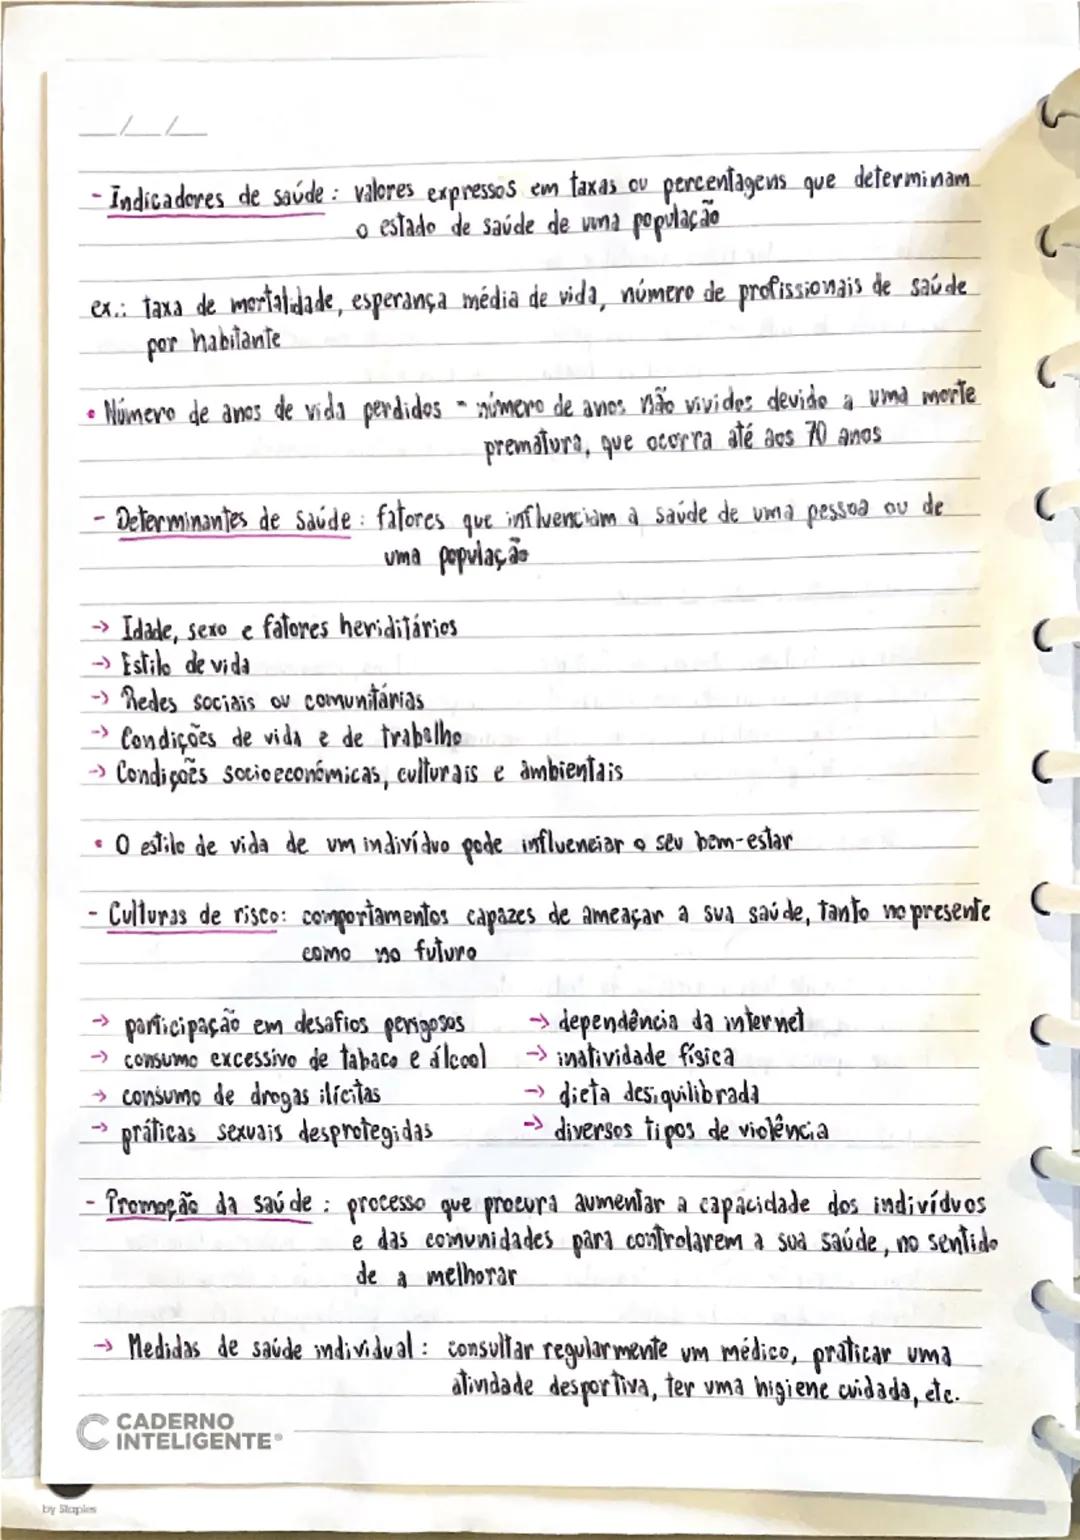 __/__/__
- Indicadores de saúde : valores expressos em taxas ou percentagens que determinam
o estado de saúde de uma população
ex.: taxa de mortalidade, esperança média de vida, número de profissionais de saúde
por habitante
• Número de anos de vida perdidos - número de anos não vividos devido a uma morte
prematura, que ocorra até aos 70 anos
- Determinantes de saúde : fatores que influenciam a saúde de uma pessoa ou de
uma população
→ Idade, sexo e fatores heriditários
→ Estilo de vida
→ Redes sociais ou comunitárias
→ Condições de vida e de trabalho
→ Condições socioeconómicas, culturais e ambientais
• O estilo de vida de um indivíduo pode influenciar o seu bem-estar
- Culturas de risco: comportamentos capazes de ameaçar a sua saúde, tanto no presente
como no futuro
→ participação em desafios perigosos → dependência da internet
→ consumo excessivo de tabaco e álcool → inatividade física
→ consumo de drogas ilícitas → dieta desiquilibrada
→ práticas sexuais desprotegidas → diversos tipos de violência
- Promoção da saúde : processo que procura aumentar a capacidade dos indivíduos
e das comunidades para controlarem a sua saúde, no sentido
de a melhorar
→ Medidas de saúde individual : consultar regularmente um médico, praticar uma
atividade desportiva, ter uma higiene cuidada, etc.
CADERNO
INTELIGENTE®
by Staples